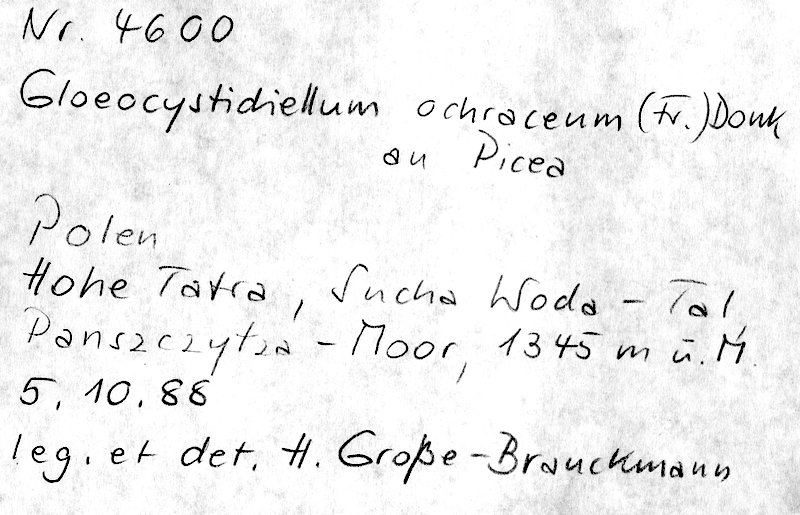 Nr. 4600
Gloeocystidiellum ochraceum (Fr.) Donk
an Picea
Polen
Hohe Tatra, Sucha Woda - Tal,
Panszczytza - Moor, 1345 m ü. M.
5. 10. 88
leg. et det. H. Große - Brauckmann